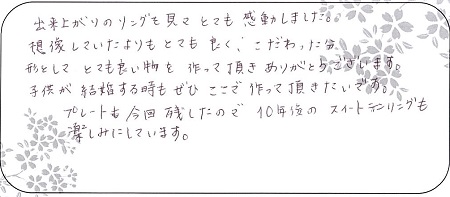 出来上がりのリングを見て とても 感動しました。
想像していたよりもとても 良く、こだわった分
形として とても良い物を 作って頂き ありがとうございます。
子供が 結婚する時も ぜひ ここで 作って頂きたいです。
プレートも 今回 残したので 10年後の スイートテンリングも
楽しみにしています。